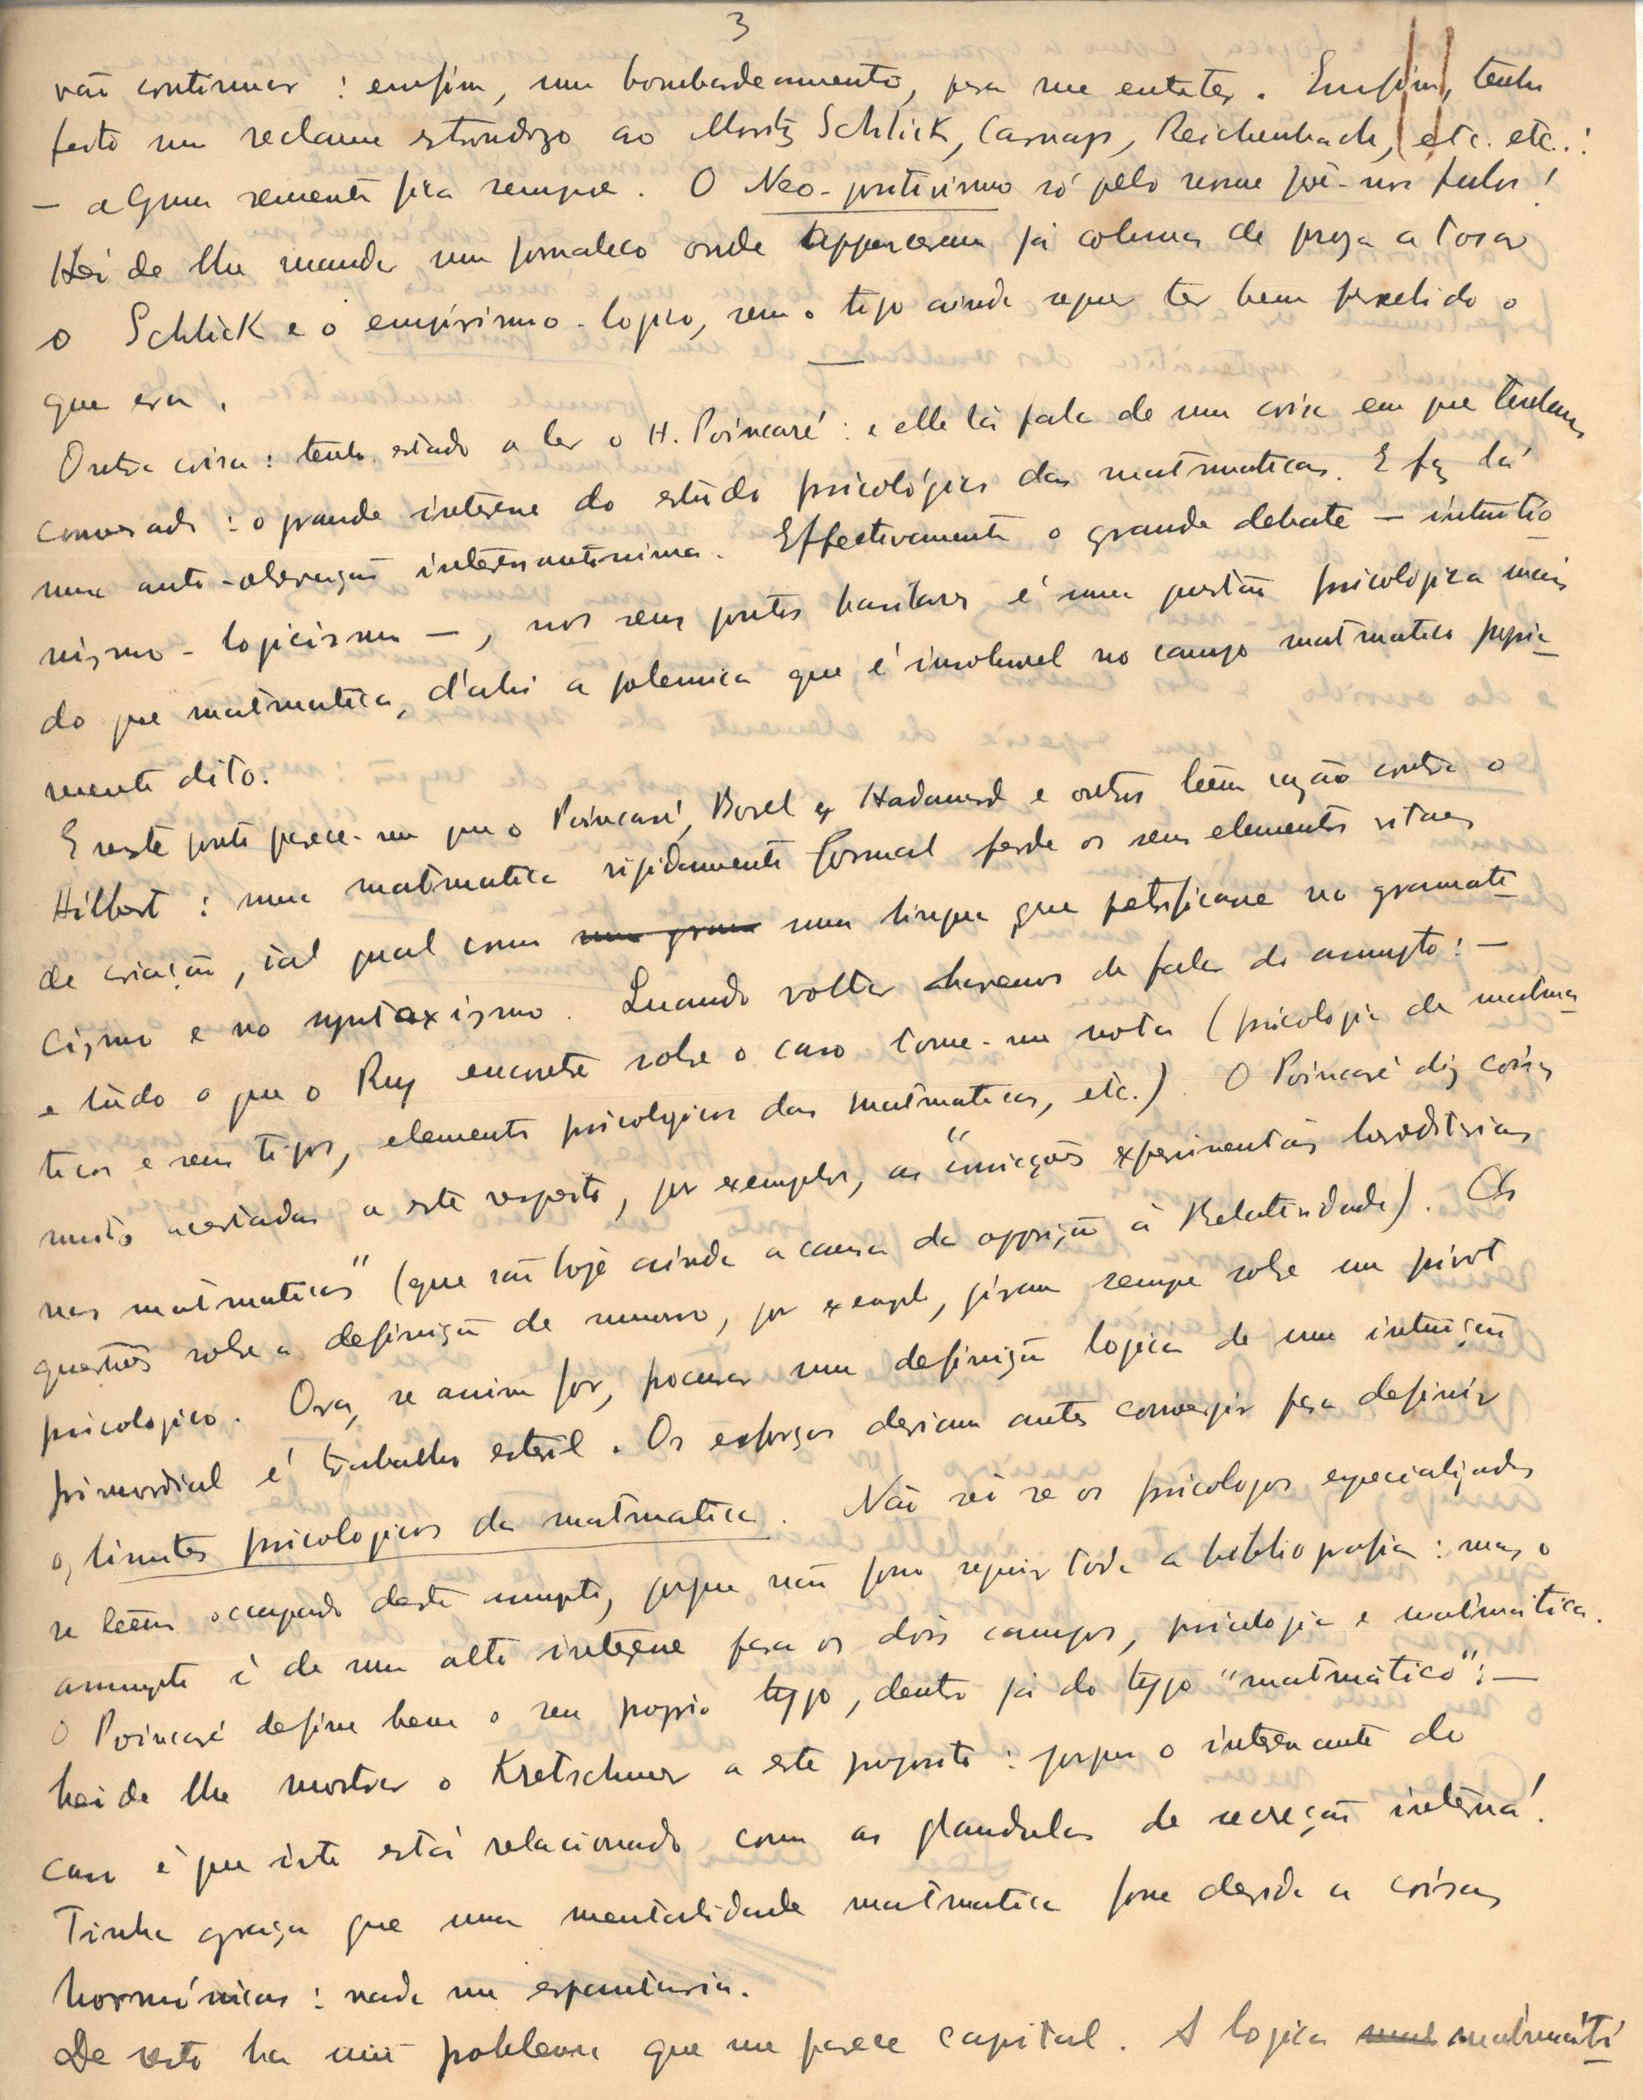 3
vão continuar : emfim, um bombardeamento, para me entreter. Emfim, tenho
feito um reclame estrondozo ao Moritz Schlick, Carnap, Reichenbach, etc. etc.:
— alguma semente fica sempre. O Neo-positivismo só pelo nome pôi-nos fulos!
Hei de lhe mandar um jornaleco onde appareceram já colunas de proza a tosar
o Schlick e o empirismo-logico, sem o tipo ainda sequer ter bem percebido o
que era.
Outra coisa : tenho estado a ler o H. Poincaré : e elle lá fala de uma coisa em que tinhamos
conversado : o grande interesse do estudo psicológico das matematicas. E faz lá
uma auto-observação interessantissima. Effectivamente o grande debate — intuitio
nismo - logicismo —, nos seus pontos basilares é uma questão psicológica mais
do que matematica, d'ahi a polemica que é insoluvel no campo matematico propria
mente dito.
E neste ponto parece-me que o Poincaré, Borel e Hadamard e outros teem razão contra o
Hilbert : uma matematica rigidamente formal perde os seus elementos vitaes
de criação, tal qual como uma gram uma lingua que petrificasse no gramati
cismo e no syntaxismo. Quando voltar havemos de falar do assumpto : —
e tudo o que o Ruy encontre sobre o caso tome-me nota (psicologia da matema
ticos, e seus tipos, elementos psicologicos das matematicas, etc.) O Poincaré diz coisas
muito acertadas a este respeito, por exemplos, as "convicções experimentaes hereditarias
nas matematicas" (que são hoje ainda a causa da opposição à Relatividade). As
questões sobre a definição de numero, por exemplo, giram sempre sobre um pivot
psicologico. Ora, se assim for, procurar uma definição logica de uma intuição
primordial é trabalho esteril. Os esforços deviam antes convergir para definir
os limites psicologicos da matematica. Não sei se os psicologos especializados
se teem occupado deste assumpto, porque não posso seguir toda a bibliografia : mas o
assumpto é de um alto interesse para os dois campos, psicologia e matemática.
O Poincaré define bem o seu proprio typo, dentro já do typo "matemático" : —
hei de lhe mostrar o Kretschmer a este proposito : porque o interessante do
caso é que isto está relacionado com as glandulas de secreção interna!
Tinha graça que uma mentalidade matematica fosse devida a coisas
hormónicas : nada me espantaria.
De resto ha um problema que me parece capital. A logica mat matemáti